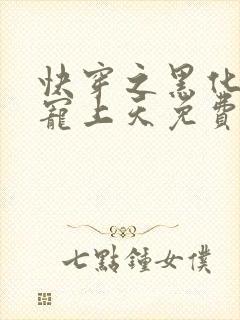 快穿之黑化
寵上天免費
七點鐘女僕